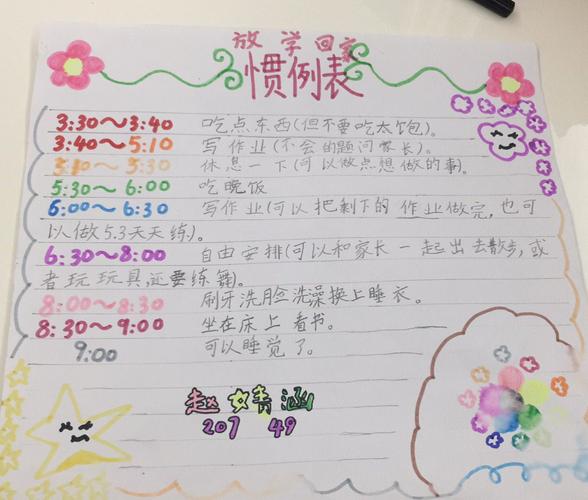 放学回家
惯例表
3:30～3:40 吃点东西(但不要吃太饱)。
3:40～5:10 写作业(不会的题问家长)。
5:10～5:30 休息一下(可以做点想做的事)。
5:30～6:00 吃晚饭
6:00～6:30 写作业(可以把剩下的作业做完,也可
以做5.3天天练)。
6:30～8:00 自由安排(可以和家长一起出去散步,或
者玩玩具还要练舞)。
8:00～8:30 刷牙洗脸洗澡换上睡衣。
8:30～9:00 坐在床上看书。
9:00 可以睡觉了。
赵婧涵
207 49